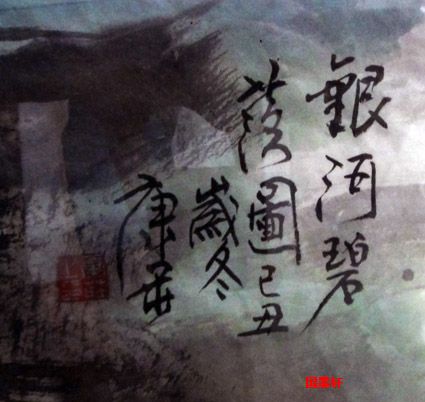 銀河碧
落圖己丑
歲冬